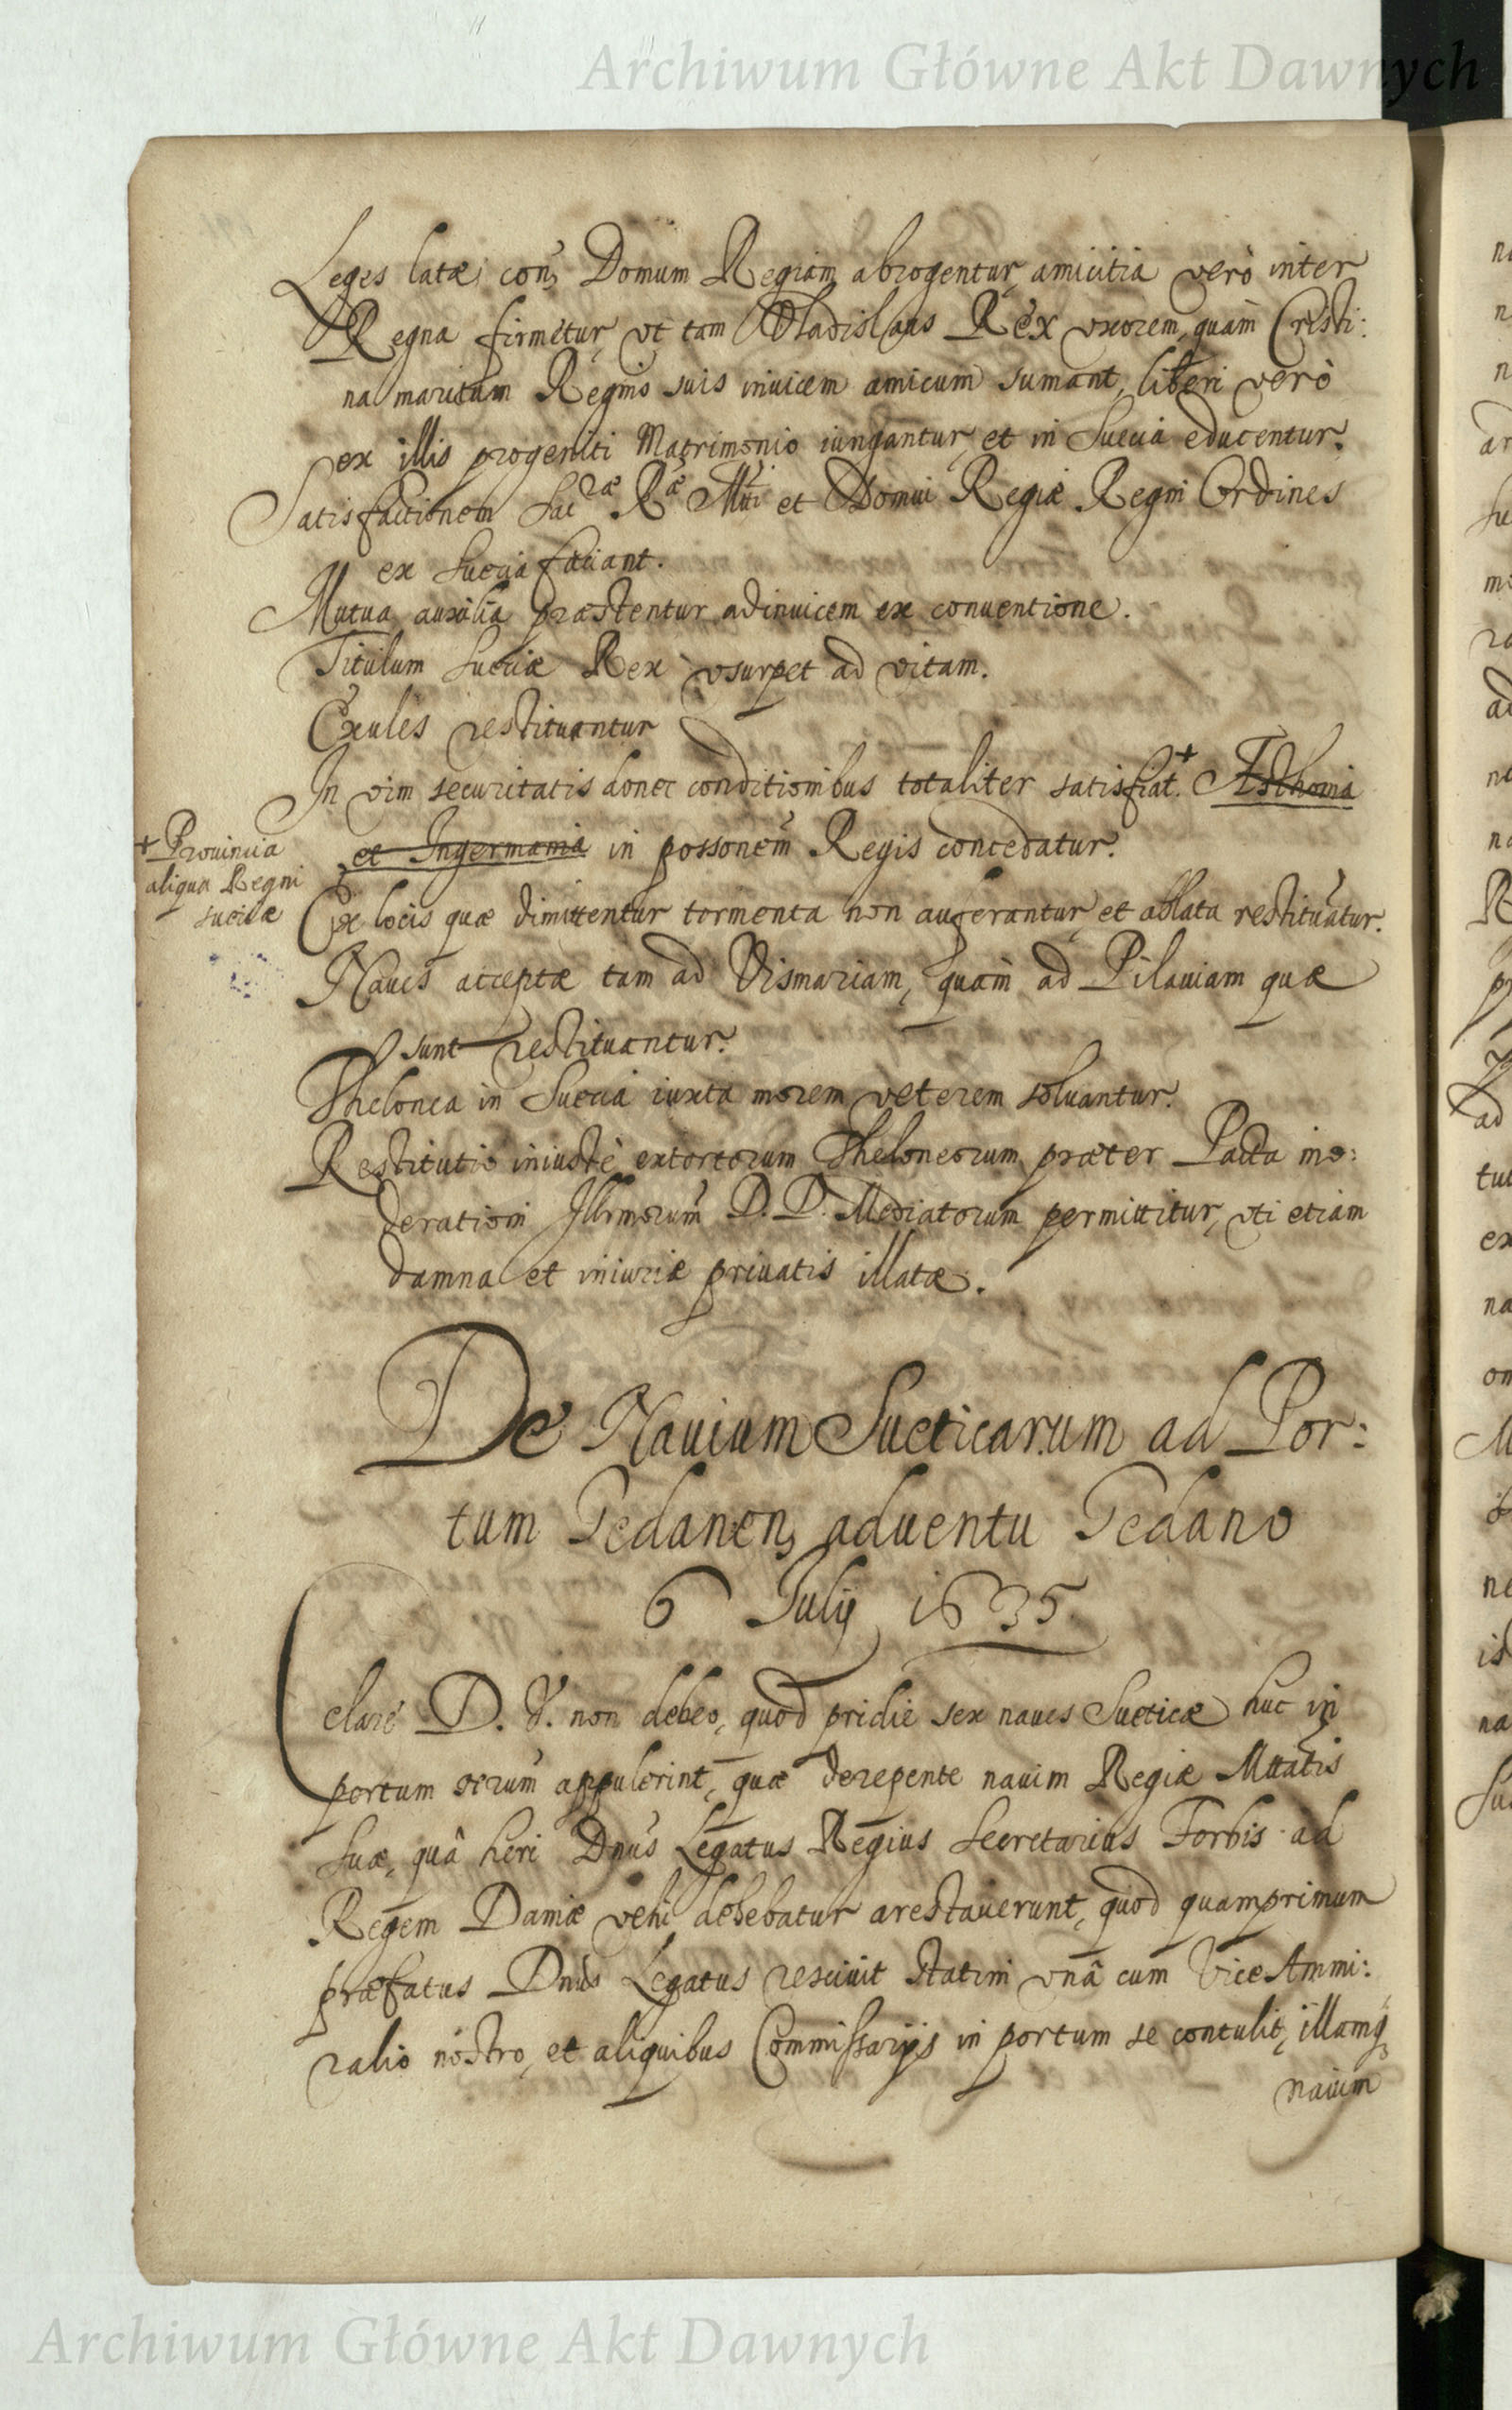 Archiwum Główne Akt Dawnych
Leges latæ, con, Domum Regiam abrogentur, amicitia verò inter
Regna firmetur, vt tam Vladislaus Rex vxorem, quàm Cristi:
na maritum Regnis suis inuicem amicum sumant, liberi verò
ex illis progeniti Matrimonio iungantur, et in Suecia educentur.
Satisfactionem Sacræ Ræ Mti et Domui Regiæ Regni Ordines
ex Suecia faciant.
Mutua auxilia præstentur adinuicem ex conuentione.
Titulum Sueciæ Rex vsurpet ad vitam.
Exules restituantur
In vim securitatis donec conditionibus totaliter satisfiat.+ Esthonia
et Ingermania in possonem Regis concedatur.
+ Prouincia
aliqua Regni
Sueciæ
Ex locis quæ dimittentur tormenta non auferantur, et ablata restituātur.
Naues acceptæ tam ad Vismariam, quàm ad Pilauiam quæ
sunt restituantur.
Thelonea in Suecia iuxta morem veterem soluantur.
Restitutio iniustè extortorum Theloneorum præter Pacta mo:
derationi Illrmorum D. D. Mediatorum permittitur, vti etiam
damna et iniuriæ priuatis illatæ.
De Nauium Sueticarum ad Por:
tum Gedanen, aduentu Gedano
6 Iulij 1635.
Celare D. V. non debeo, quod pridie sex naues Sueticæ huc in
portum appulerint, quæ derepente nauim Regiæ Mttatis
Suæ, quâ heri Dnus Legatus Regius Secretarius Forbis ad
Regem Daniæ vehi debebatur arestauerunt, quod quamprimum
præfatus Dnus Legatus resciuit statim vnâ cum Vice Ammi:
ralio nostro, et aliquibus Commissarijs in portum se contulit, illamq
nauim
Archiwum Główne Akt Dawnych